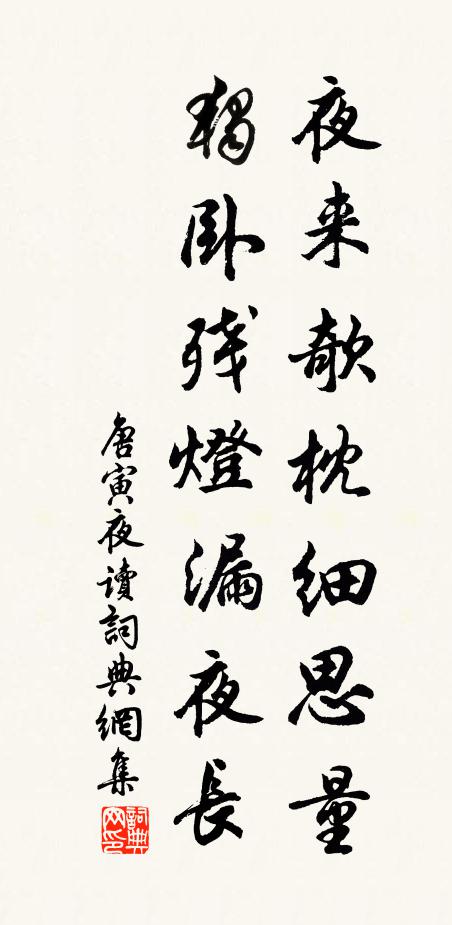 夜来欹枕细思量
獨卧残燈漏夜長
唐寅夜讀詞典網集
詞典网印